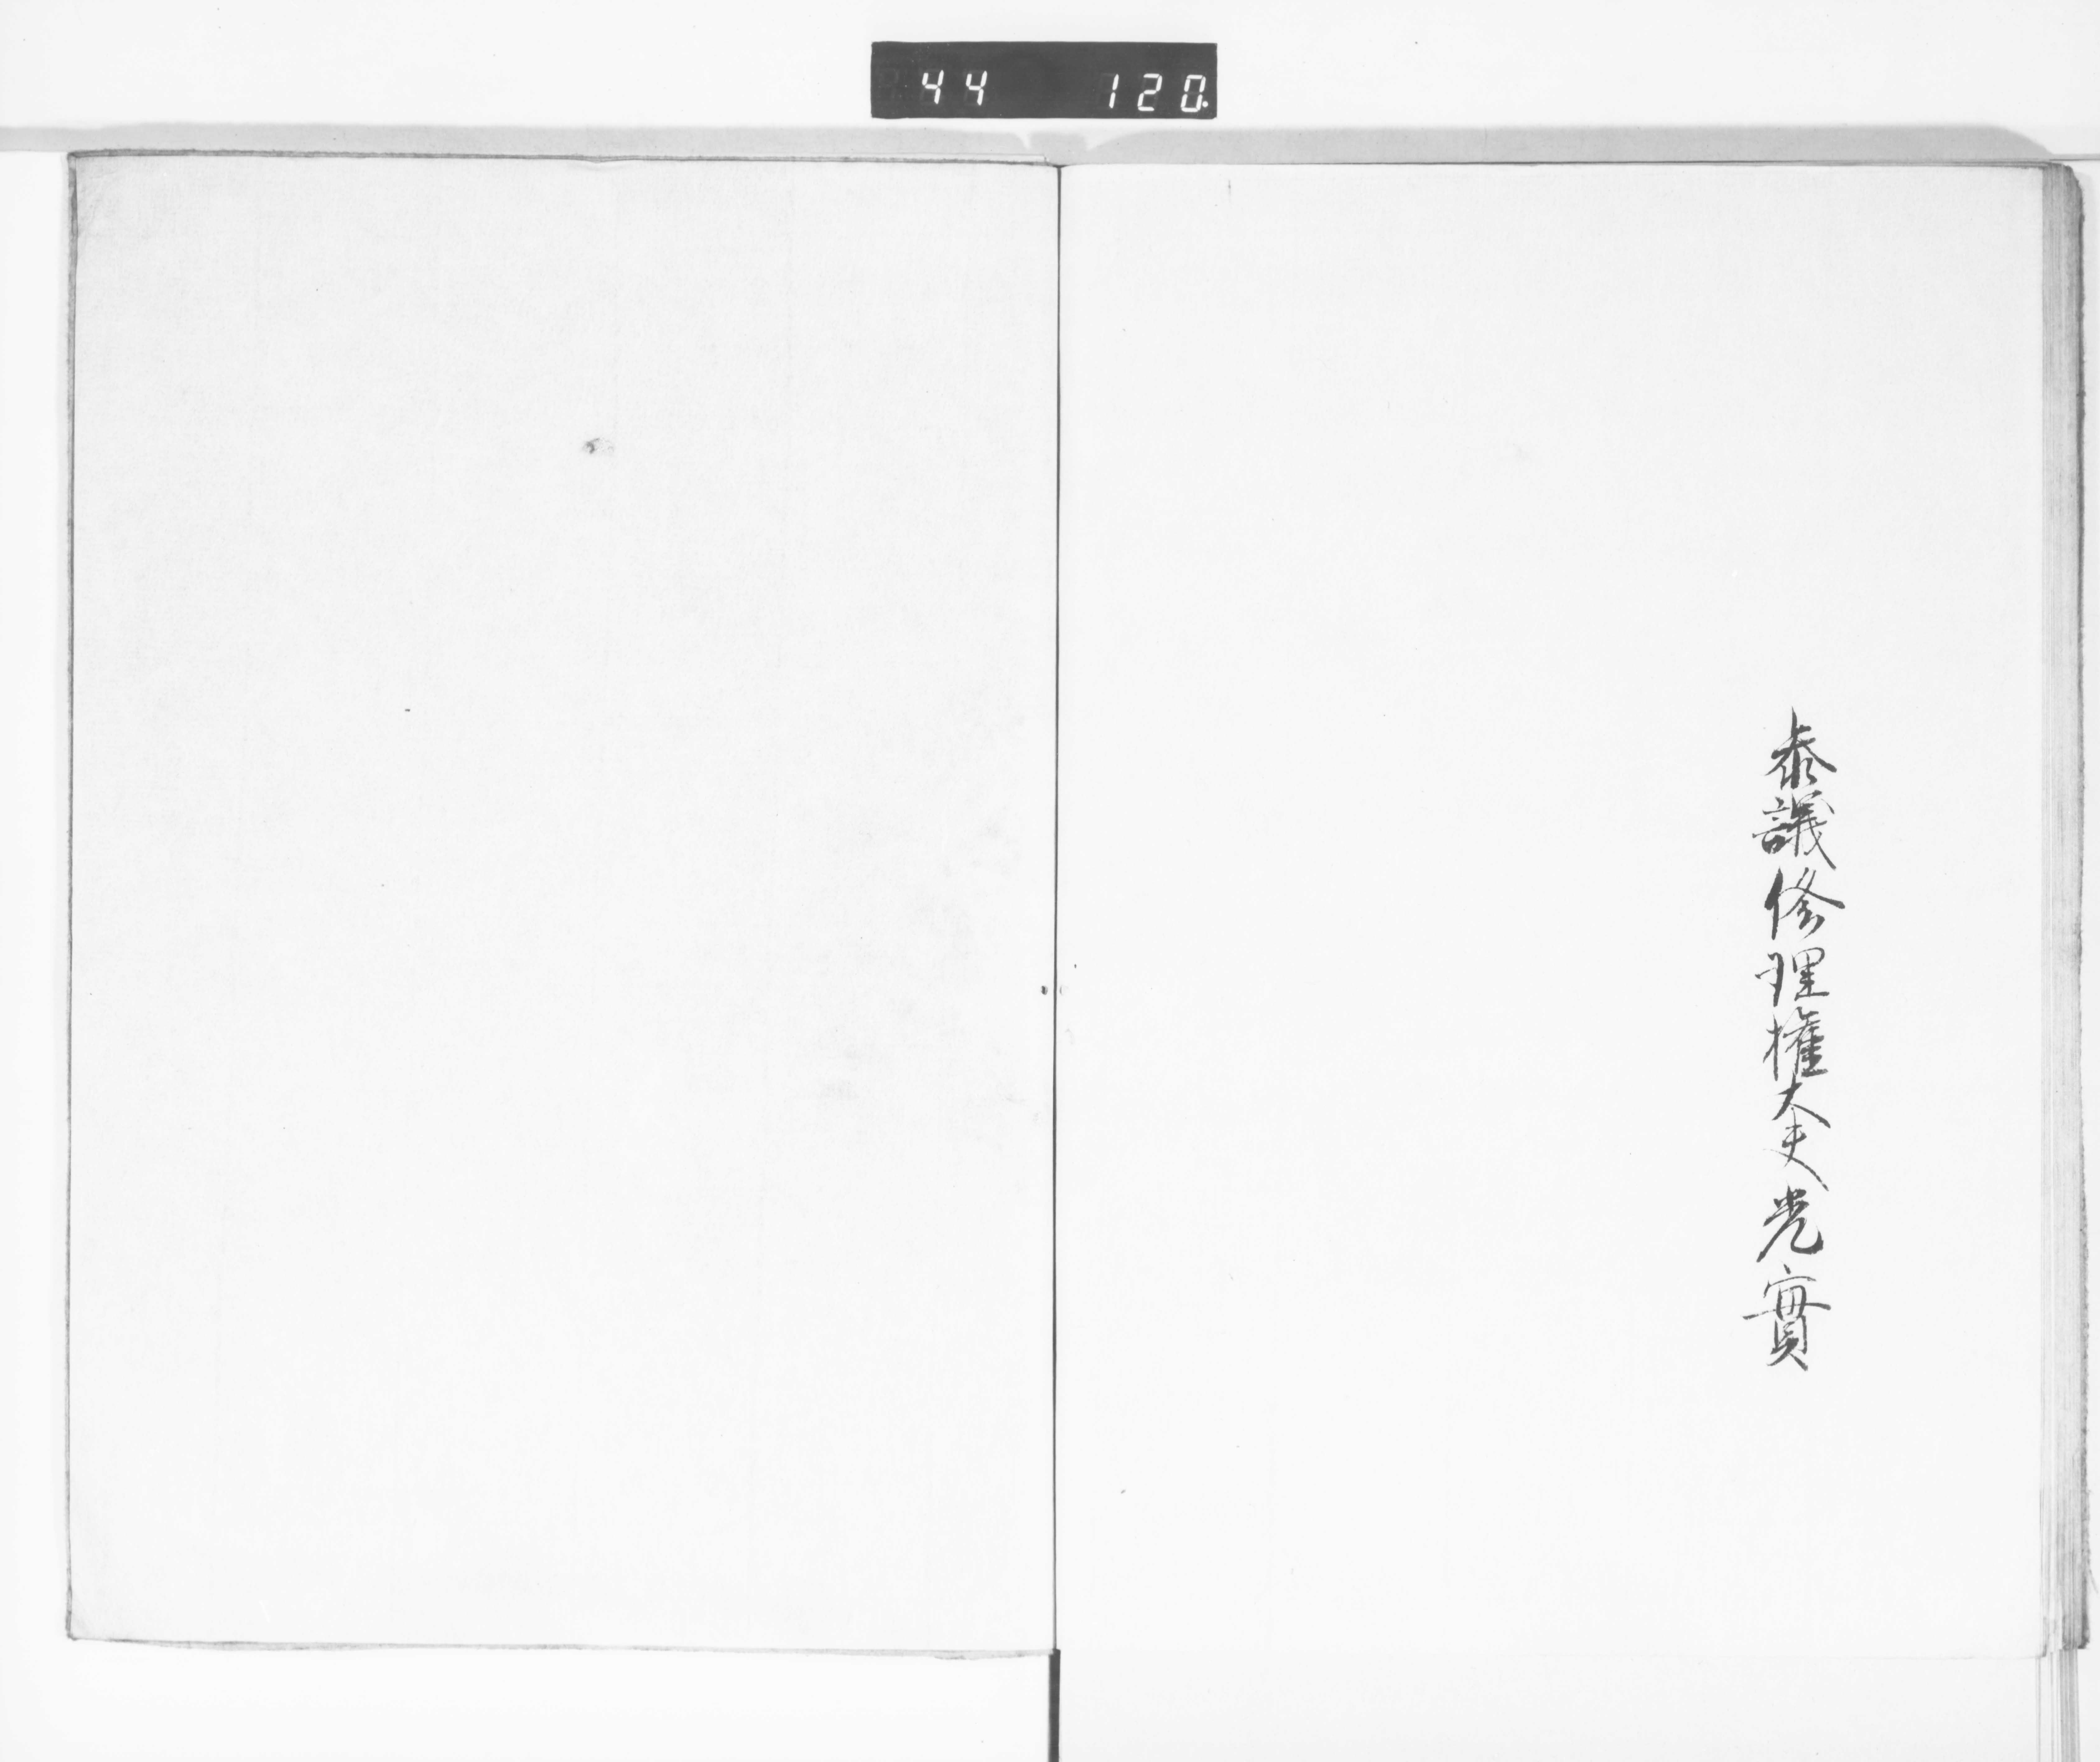 44 120.
参議修理権大夫光實